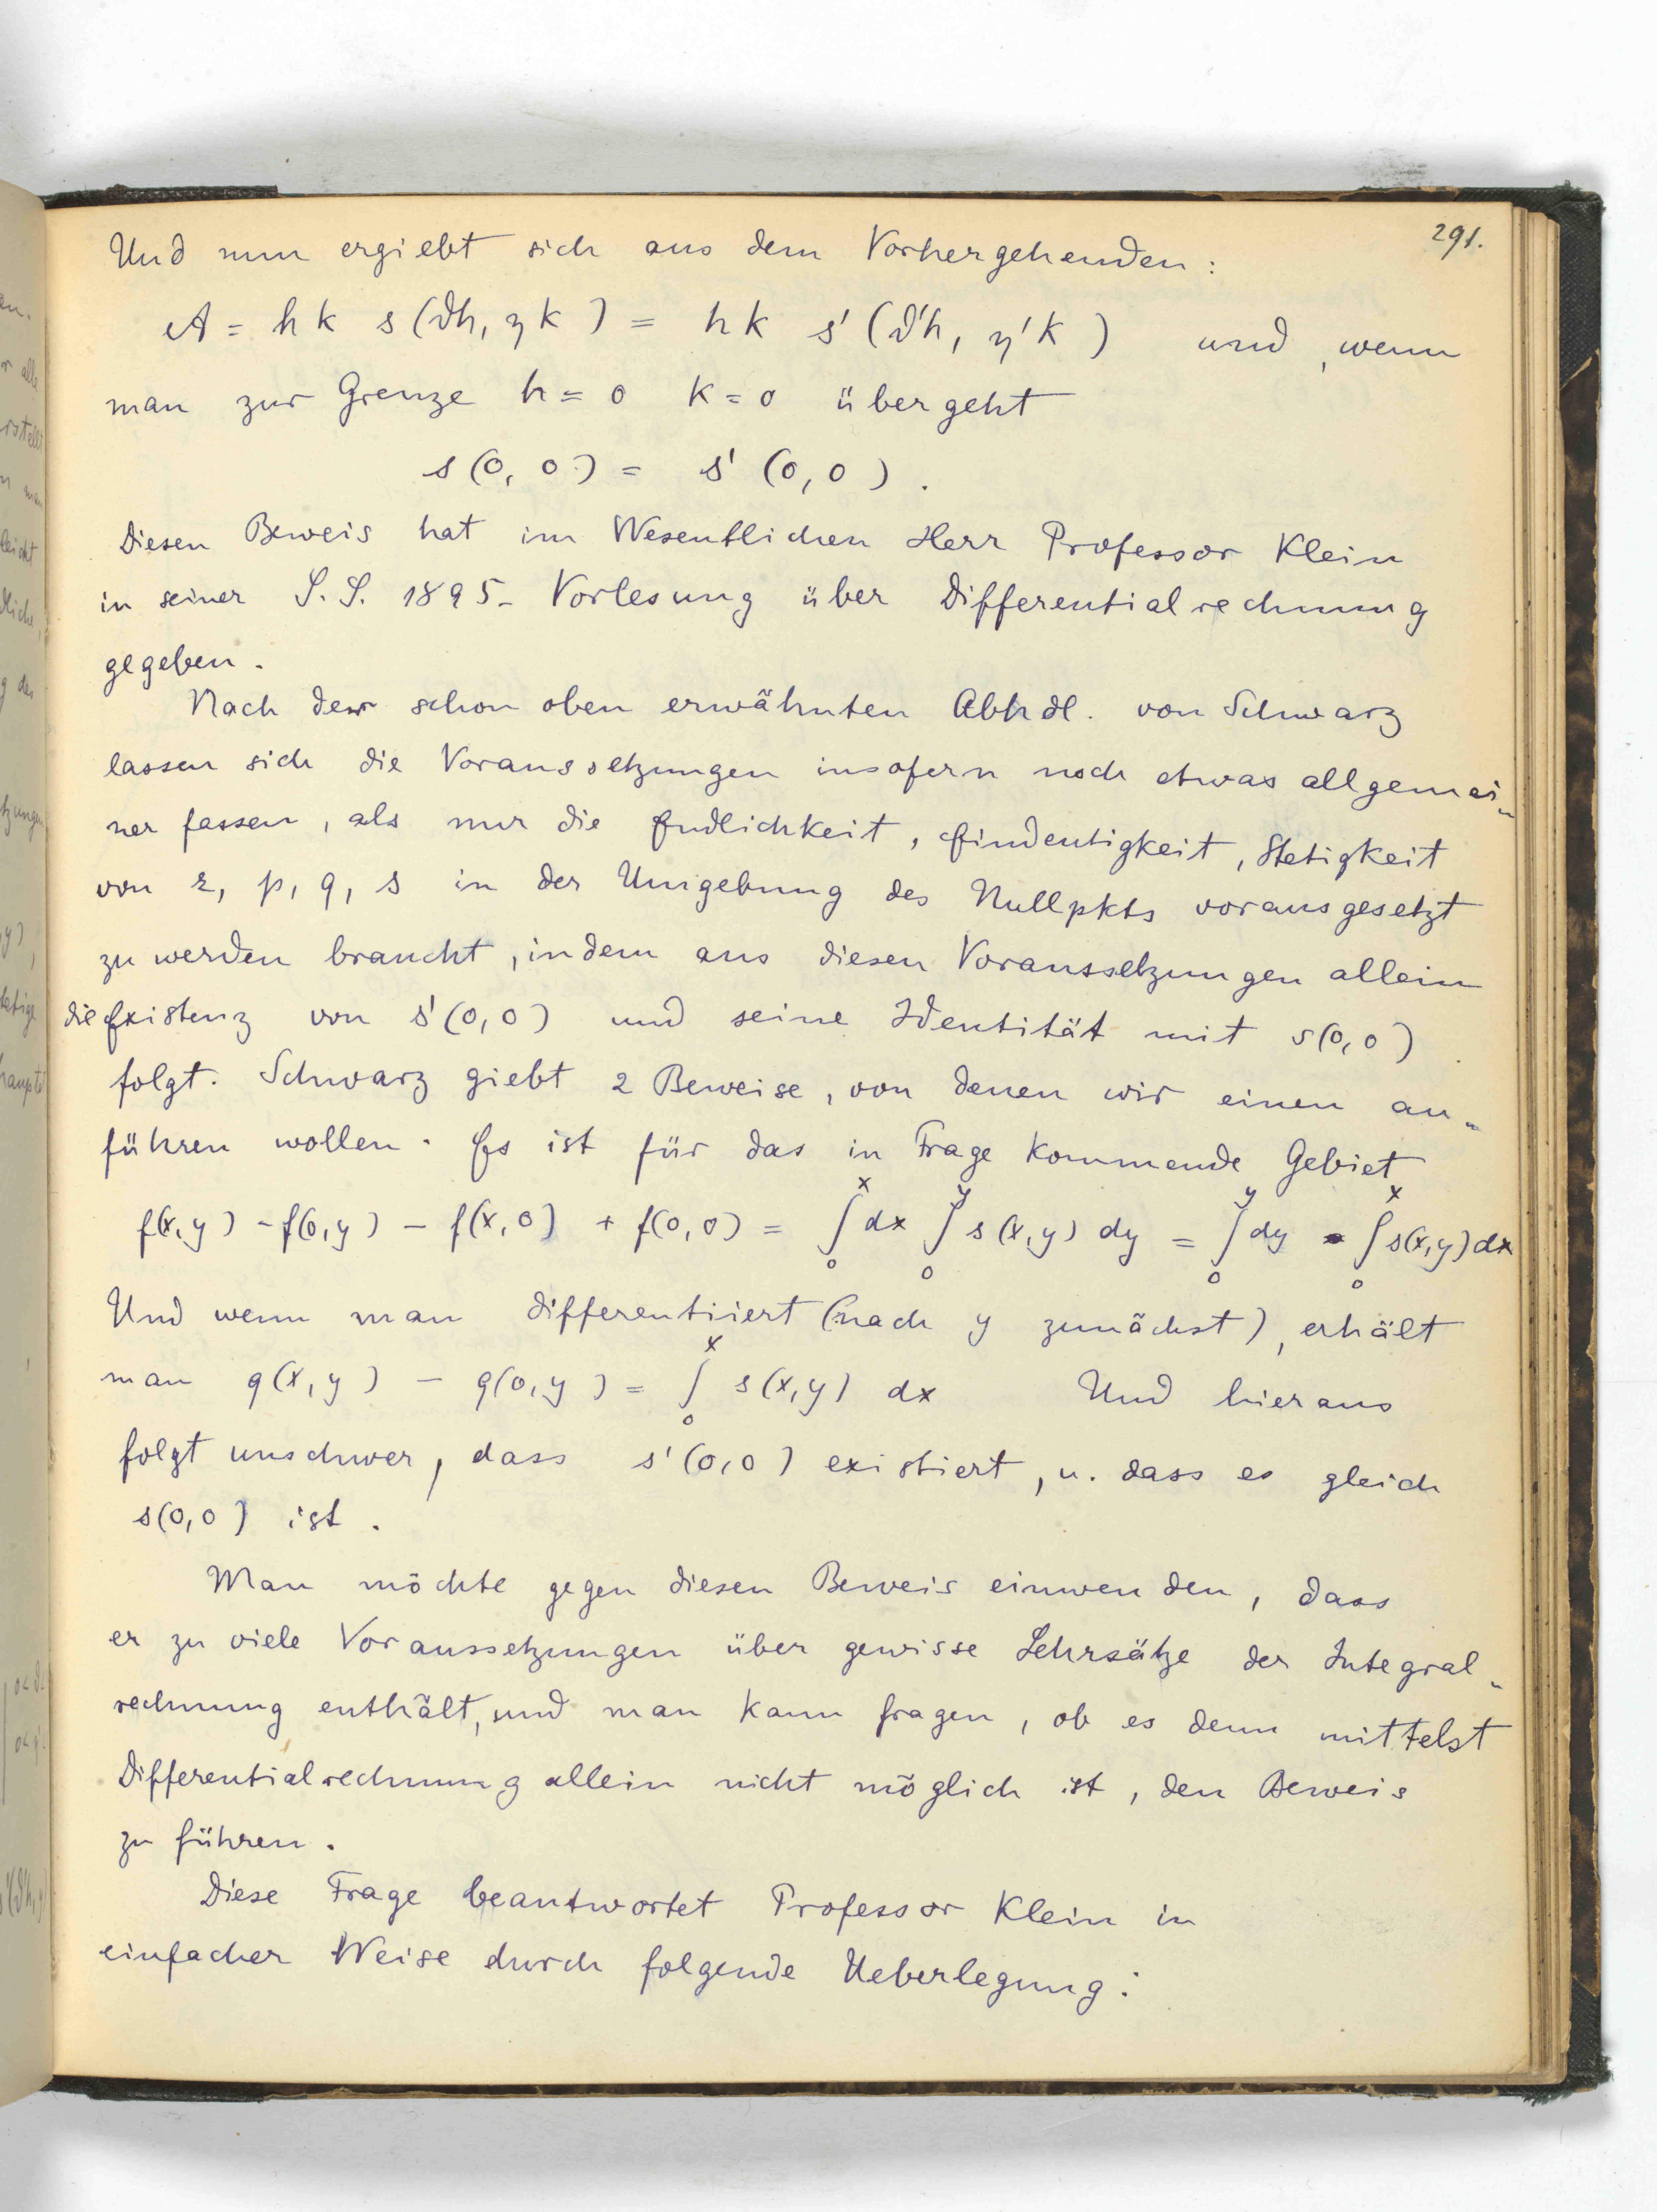 291.
Und nun ergiebt sich aus dem Vorhergehenden:
A = hk s(ϑh, ηk) = hk s'(ϑ'h, η'k) und, wenn
man zur Grenze h=0 k=0 übergeht
s(0,0) = s'(0,0).
Diesen Beweis hat im Wesentlichen Herr Professor Klein
in seiner S.S. 1895- Vorlesung über Differentialrechnung
gegeben.
Nach der schon oben erwähnten Abhdl. von Schwarz
lassen sich die Voraussetzungen insofern noch etwas allgemei-
ner fassen, als nur die Endlichkeit, Eindeutigkeit, Stetigkeit
von z, p, q, s in der Umgebung des Nullpkts vorausgesetzt
zu werden braucht, indem aus diesen Voraussetzungen allein
die Existenz von s'(0,0) und seine Identität mit s(0,0)
folgt. Schwarz giebt 2 Beweise, von denen wir einen an-
führen wollen. Es ist für das in Frage kommende Gebiet
f(x,y) - f(0,y) - f(x,0) + f(0,0) = ∫₀ˣ dx ∫₀ʸ s(x,y) dy = ∫₀ʸ dy ∫₀ˣ s(x,y) dx
Und wenn man differentiiert (nach y zunächst), erhält
man q(x,y) - q(0,y) = ∫₀ˣ s(x,y) dx Und hieraus
folgt unschwer, dass s'(0,0) existiert, u. dass es gleich
s(0,0) ist.
Man möchte gegen diesen Beweis einwenden, dass
er zu viele Voraussetzungen über gewisse Lehrsätze der Integral-
rechnung enthält, und man kann fragen, ob es denn mittelst
Differentialrechnung allein nicht möglich ist, den Beweis
zu führen.
Diese Frage beantwortet Professor Klein in
einfacher Weise durch folgende Ueberlegung: